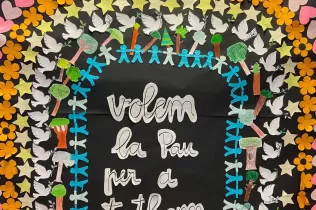 volem
la Pau
per a
tothom